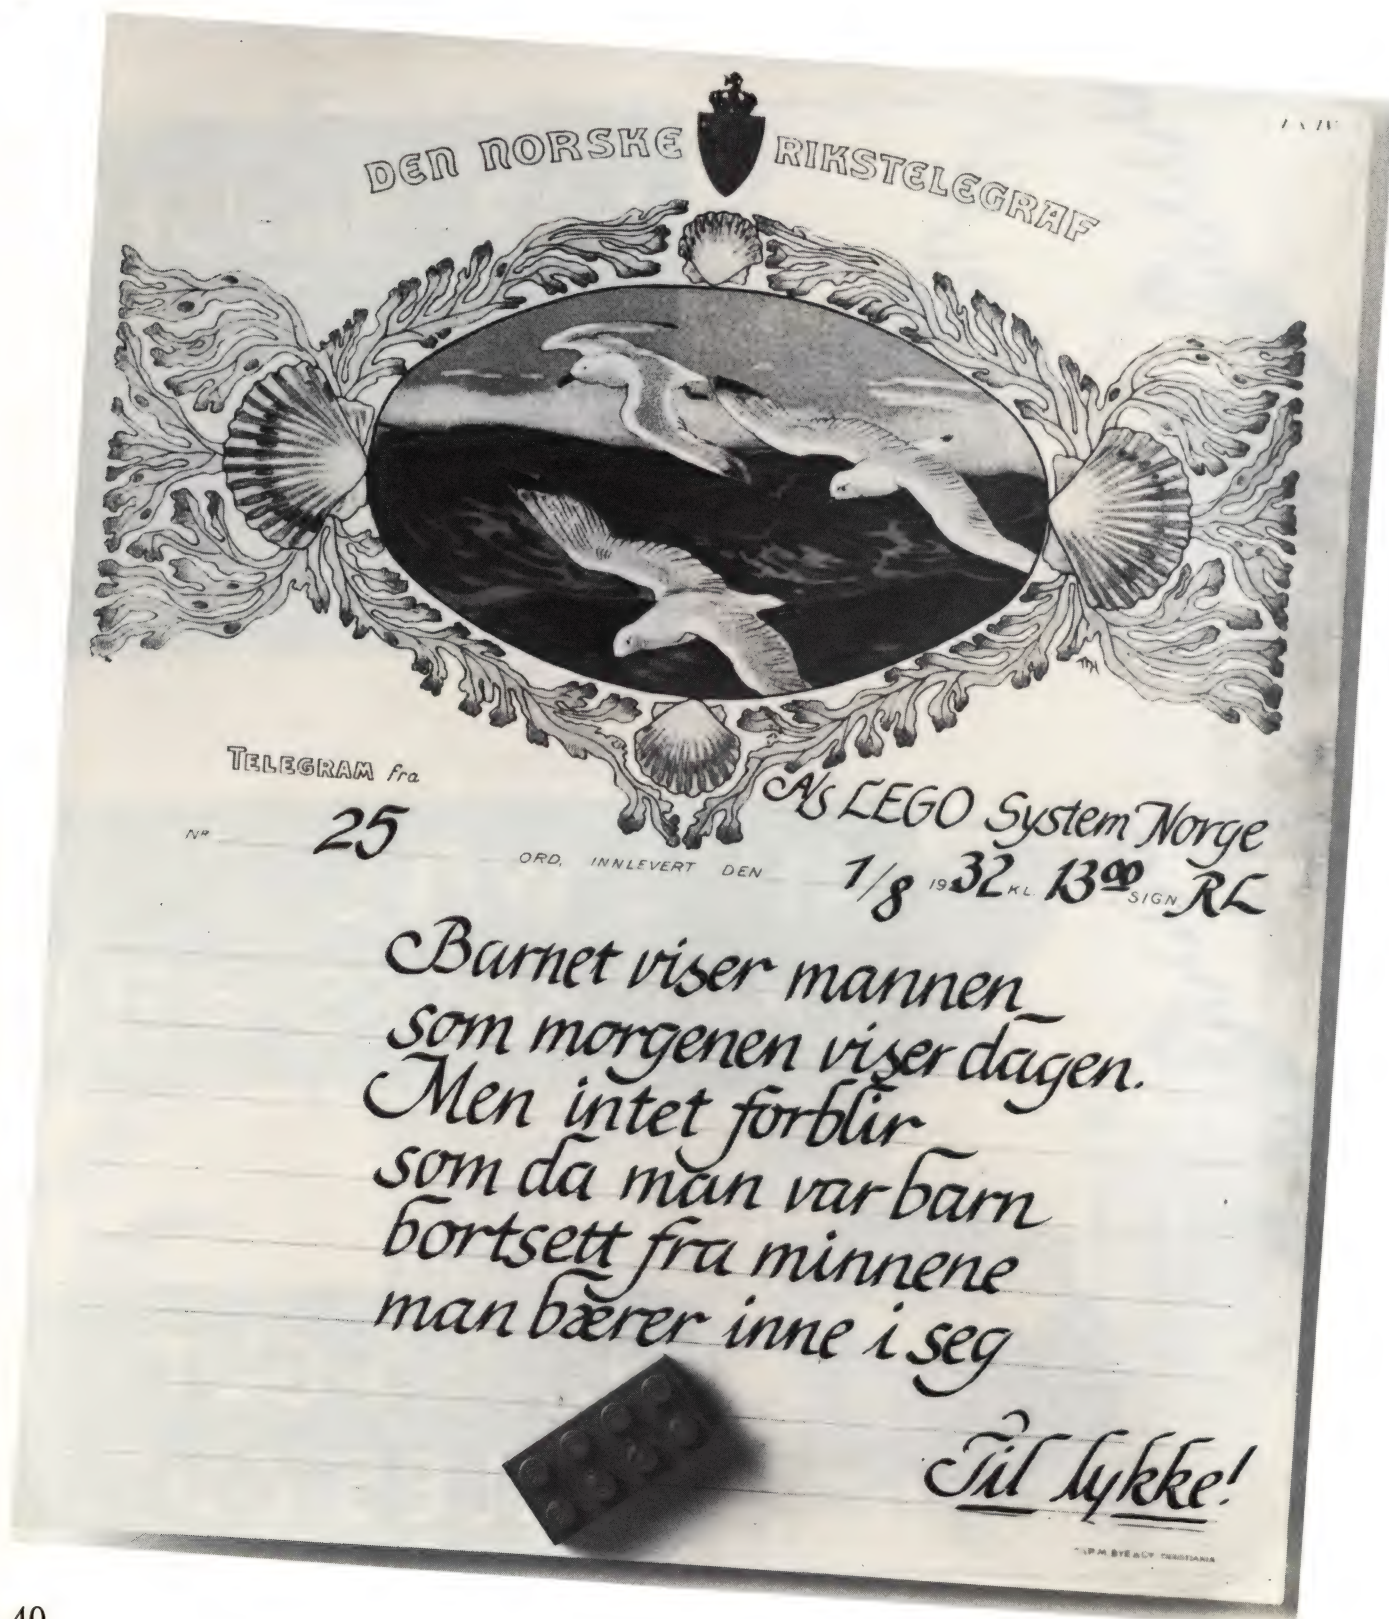 DEN NORSKE RIKSTELEGRAF
TELEGRAM fra
A/S LEGO System Norge
NR 25 ORD, INNLEVERT DEN 1/8 1932 KL 13⁰⁰ SIGN. RL
Barnet viser mannen
som morgenen viser dagen.
Men intet forblir
som da man var barn
bortsett fra minnene
man bærer inne i seg
Til lykke!
40